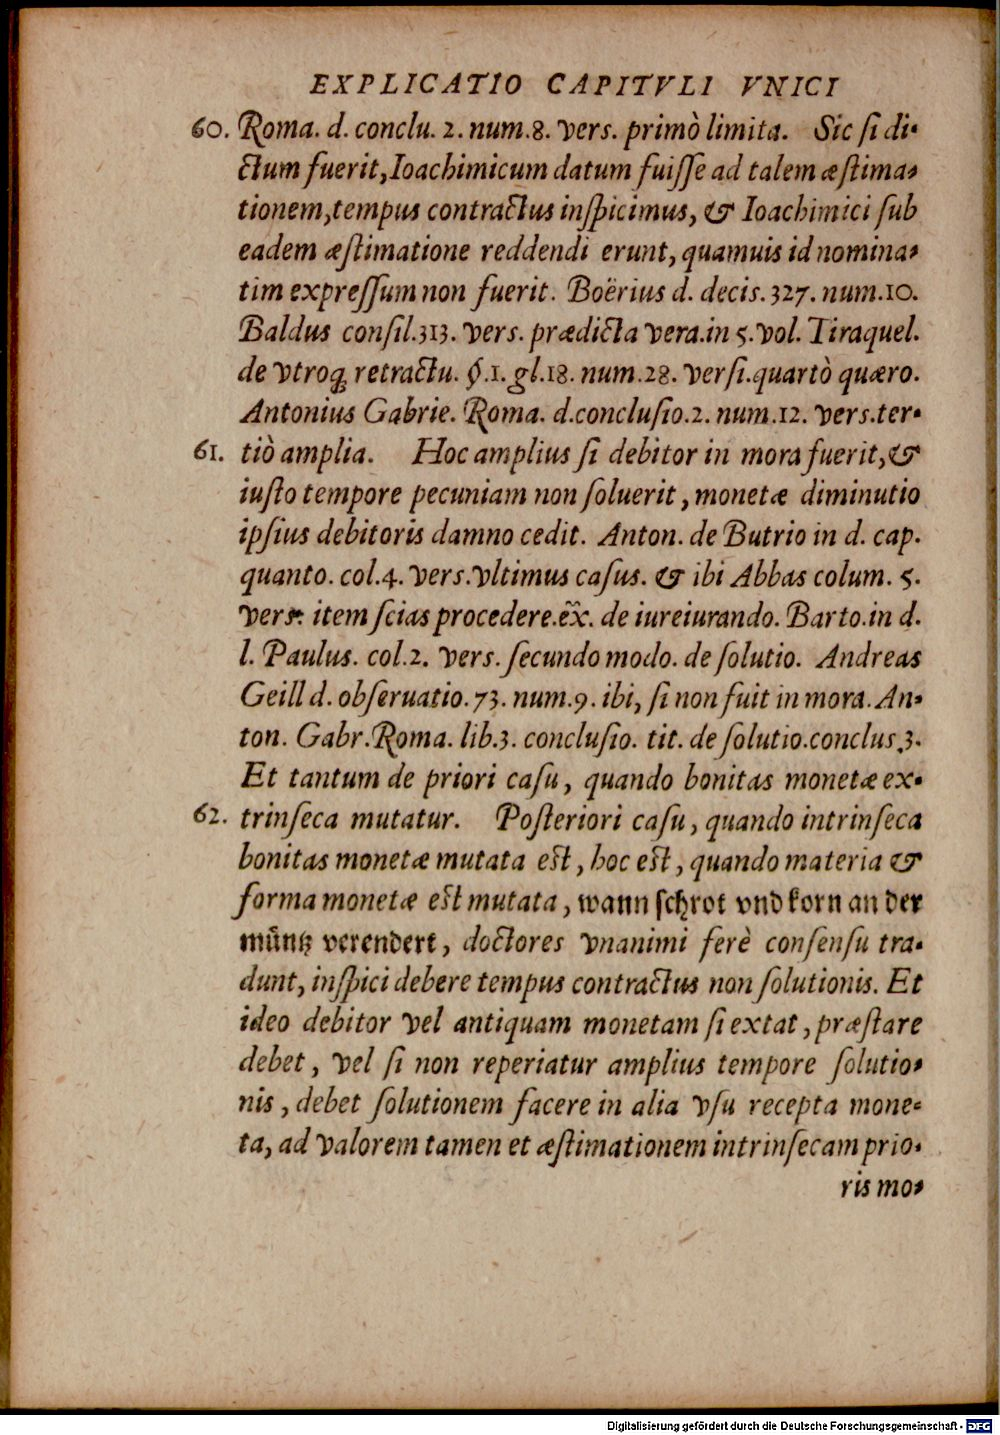 EXPLICATIO CAPITVLI VNICI
60. Roma. d. conclu. 2. num.8. vers. primò limita. Sic ſi di-
ctum fuerit, Ioachimicum datum fuiſſe ad talem æſtima-
tionem, tempus contractus inſpicimus, & Ioachimici ſub
eadem æſtimatione reddendi erunt, quamuis id nomina-
tim expreſſum non fuerit. Boërius d. decis. 327. num.10.
Baldus conſil.313. vers. prædicta vera.in 5. vol. Tiraquel.
de vtroq; retractu. §.1. gl.18. num.28. verſi.quartò quæro.
Antonius Gabrie. Roma. d.concluſio.2. num.12. vers.ter-
61. tiò amplia. Hoc amplius ſi debitor in mora fuerit, &
iuſto tempore pecuniam non ſoluerit, monetæ diminutio
ipſius debitoris damno cedit. Anton. de Butrio in d. cap.
quanto. col.4. vers.vltimus caſus. & ibi Abbas colum. 5.
vers. item ſcias procedere.ex̃. de iureiurando. Barto.in d.
l. Paulus. col.2. vers. ſecundo modo. de ſolutio. Andreas
Geill d. obſeruatio.73. num.9. ibi, ſi non fuit in mora. An-
ton. Gabr.Roma. lib.3. concluſio. tit. de ſolutio.conclus.3.
Et tantum de priori caſu, quando bonitas monetæ ex-
62. trinſeca mutatur. Poſteriori caſu, quando intrinſeca
bonitas monetæ mutata eſt, hoc eſt, quando materia &
forma monetæ eſt mutata, wann ſchrot vnd korn an der
muͤntz verendert, doctores vnanimi ferè conſenſu tra-
dunt, inſpici debere tempus contractus non ſolutionis. Et
ideo debitor vel antiquam monetam ſi extat, præſtare
debet, vel ſi non reperiatur amplius tempore ſolutio-
nis, debet ſolutionem facere in alia vſu recepta mone-
ta, ad valorem tamen et æſtimationem intrinſecam prio-
ris mo-
Digitalisierung gefördert durch die Deutsche Forschungsgemeinschaft - DFG